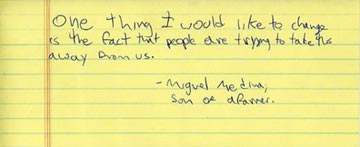 One thing I would like to change
is the fact that people are trying to take this
away from us.
- Miguel Medina,
Son of a farmer.